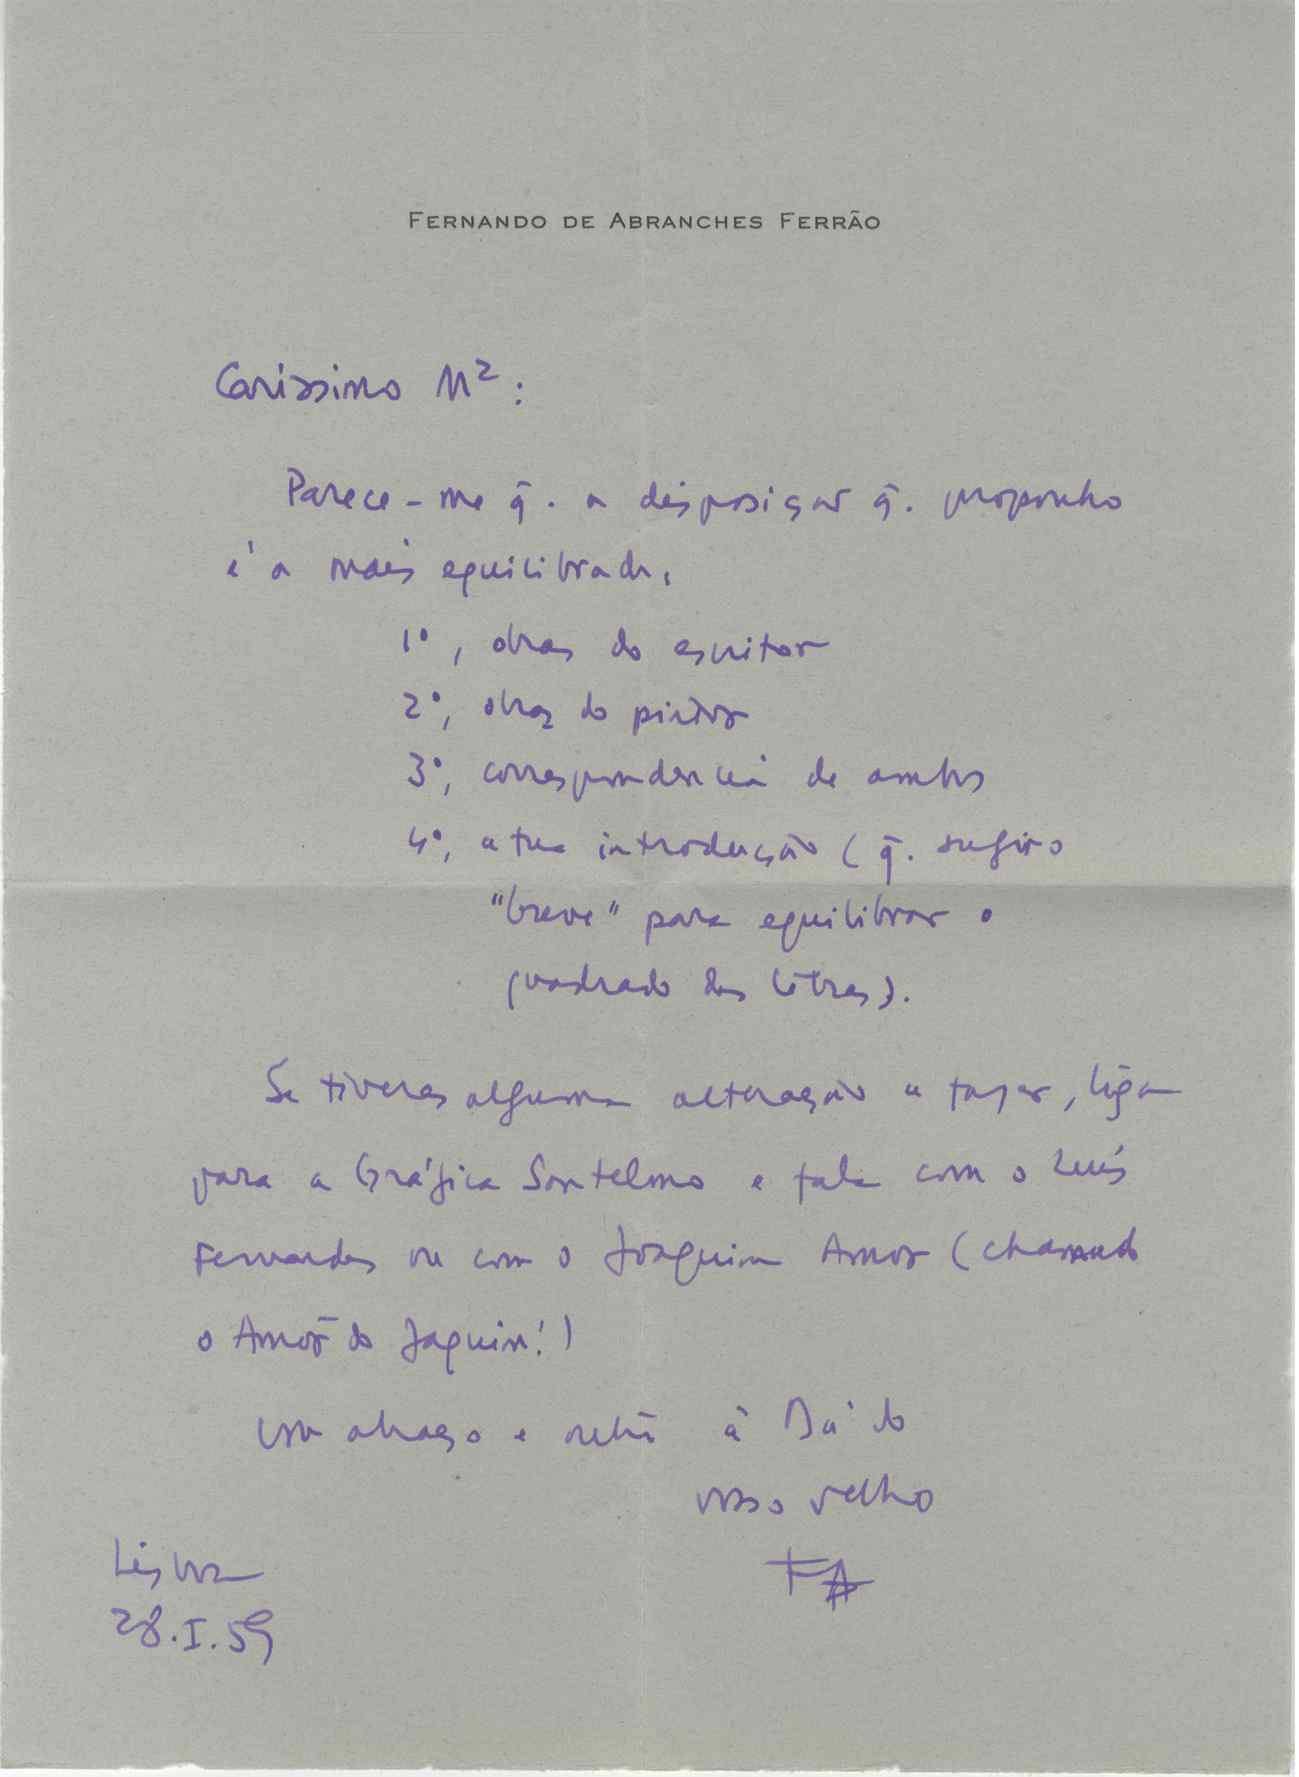 FERNANDO DE ABRANCHES FERRÃO
Caríssimo M²:
Parece-me q̃. a disposição q̃. proponho
é a mais equilibrada.
1º, obras do escritor
2º, obras do pintor
3º, correspondência de ambos
4º, a tua introdução (q̃. sugiro
"breve" para equilibrar o
quadrado das letras).
Se tiveres alguma alteração a fazer, liga
para a Gráfica Santelmo e fala com o Luís
Fernandes ou com o Joaquim Amor (chamado
o Amor do Jaquim!)
Um abraço e à do
vosso velho
FA
Lisboa
28.I.59